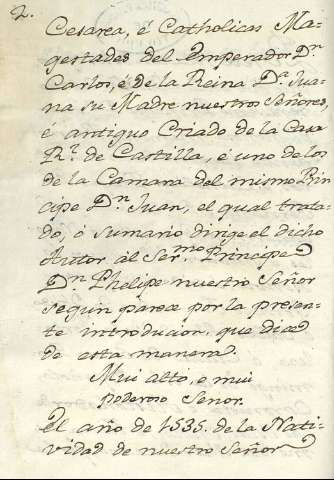 2.
Cesarea, é Catholicas Ma-
gestades del Emperador Dn.
Carlos, é de la Reina Da. Jua-
na su Madre nuestros Señores,
é antiguo Criado de la Casa
Rl. de Castilla, é uno de los
de la Camara del mismo Prin-
cipe Dn. Juan, el qual trata-
do, ó sumario dirige el dicho
Autor al Sermo. Principe
Dn. Phelipe nuestro Señor
segun parece por la presen-
te introducion, que dice
de esta manera.
Mui alto, e mui
poderoso Senor.
El año de 1535. de la Nati-
vidad de nuestro Señor